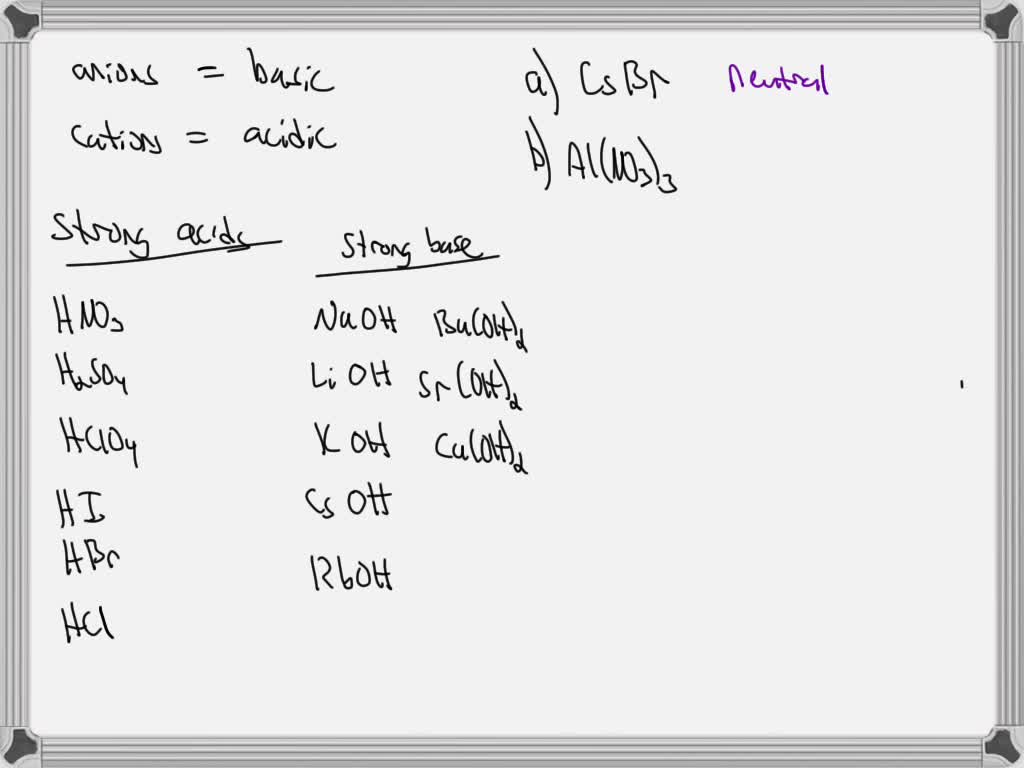 anions = basic
cations = acidic
a) CsBr Neutral
b) Al(NO3)3
Strong acids
Strong base
HNO3
H2SO4
HClO4
HI
HBr
HCl
NaOH Ba(OH)2
LiOH Sr(OH)2
KOH Ca(OH)2
CsOH
RbOH